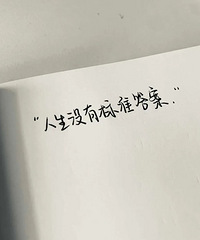 “人生没有标准答案.”